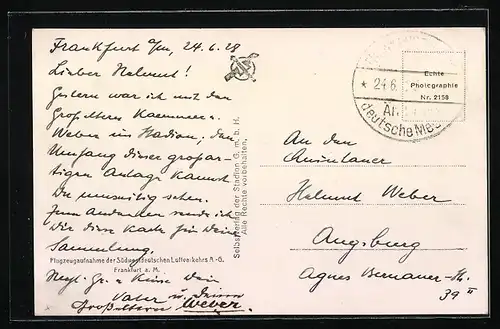 Frankfurt a/m, 24.6.28
Lieber Helmut!
Gestern war ich mit den
Großeltern Kaemmerer
Weber im Stadion, den
Umfang dieser großar-
tigen Anlage kannst
Du umseitig sehen.
Zum Andenken sende ich
Dir diese Karte für Deine
Sammlung.
Flugzeugaufnahme der Südwestdeutschen Luftverkehrs A.-G.
Frankfurt a. M.
Herzl. Gr. u. Küsse Dein
Vater u. Deinen
Großeltern Weber.
Selbstverlag der Stadion G. m. b. H.
Alle Rechte vorbehalten.
* 24.6.
deutsche
Echte
Photographie
Nr. 2158
An den
Quintaner
Helmut Weber
Augsburg
Agnes Bernauer-Str.
39 II